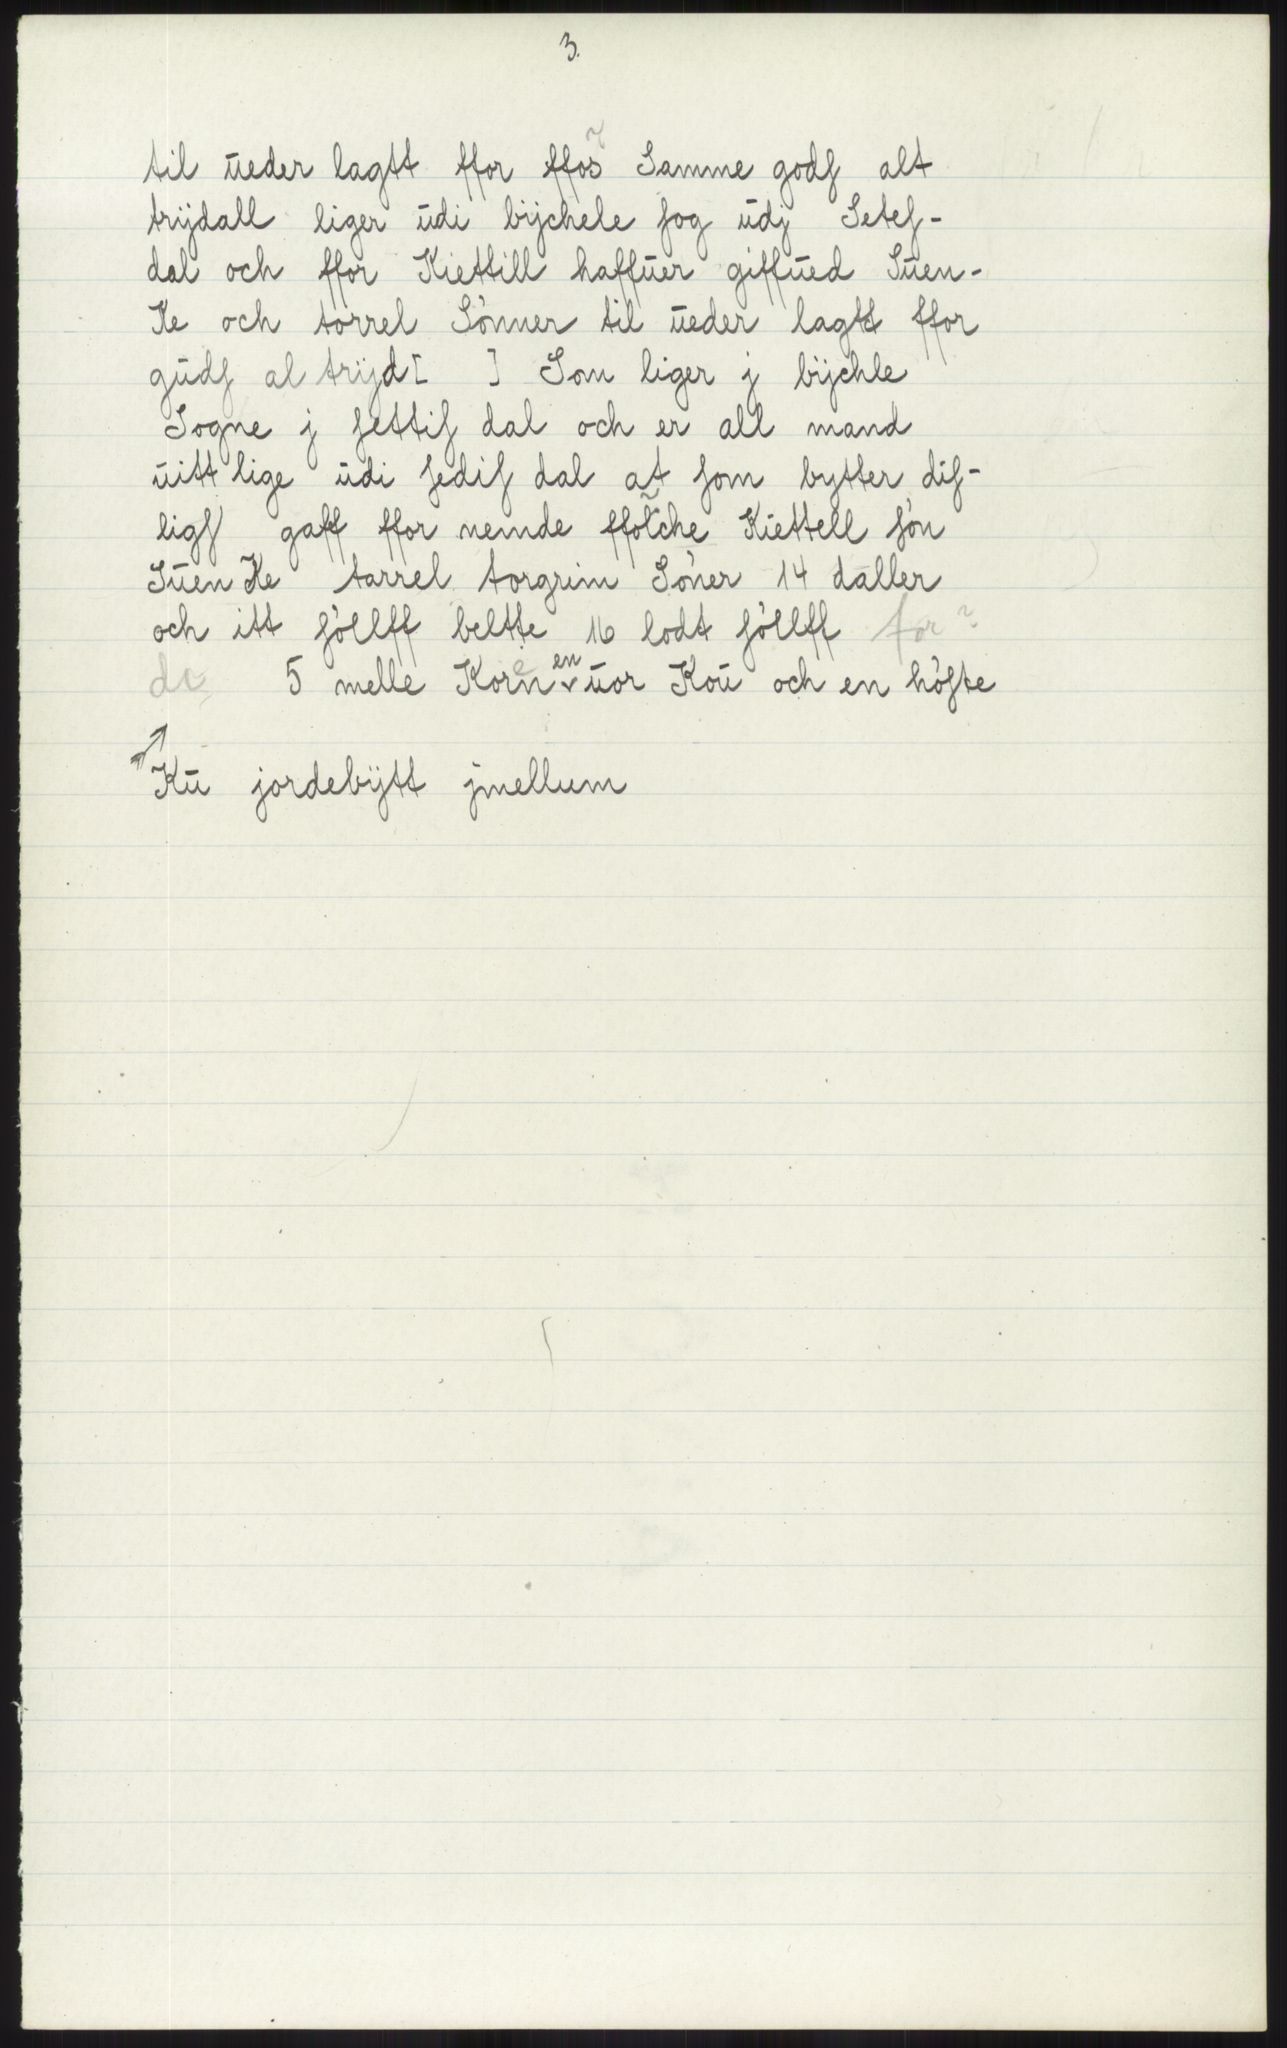 3.
til ūeder lagtt ffor ffos̃ Samme godſ alt
trÿdall liger ūdi bÿchele ſog ūdj Seteſ-
dal och ffor Kiettill haffūer giffūed Sūen-
Ke och torrel Sönner til ūeder lagtt ffor
gūdſ al trÿd[ ] Som liger j bÿchle
Sogne j ſettiſ dal och er all mand
ūitt lige ūdi ſediſ dal at ſom bytter diſ-
ligſ gaff ffor nemde ffolche Kiettell ſön
Sūen Ke tarrel torgrim Söner 14 daller
och itt ſöllff beltte 16 lodt ſöllff for?
de 5 melle Korn en ūor Koū och en höſte
Kū jordebÿtt jmellum